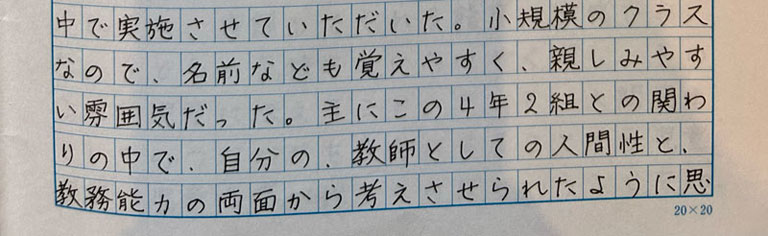 中で実施させていただいた。小規模のクラス
なので、名前なども覚えやすく、親しみやす
い雰囲気だった。主にこの4年2組との関わ
りの中で、自分の、教師としての人間性と、
教務能力の両面から考えさせられたように思
20×20